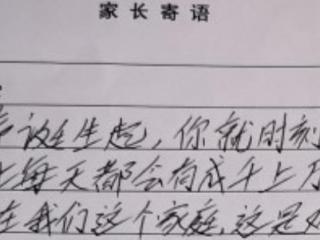 家长寄语
诞生起，你就时刻
上每天都会有成千上万
在我们这个家庭，这是